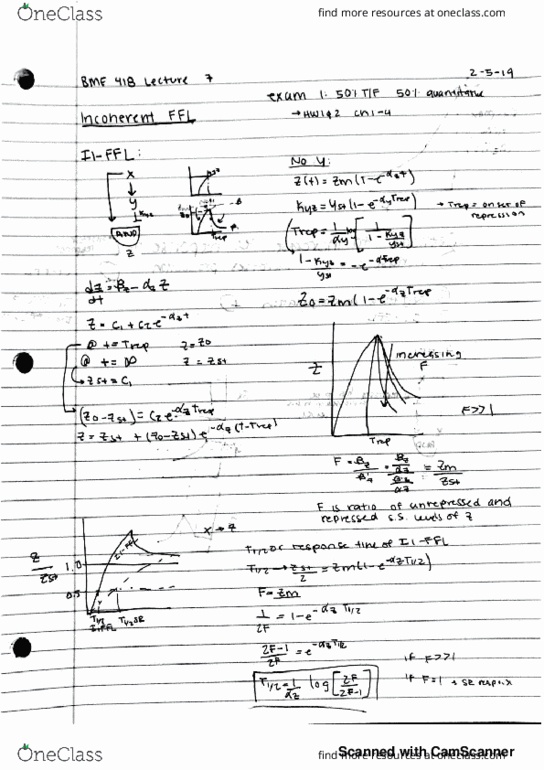 OneClass
find more resources at oneclass.com
BMF 418 Lecture 7
2-5-19
exam 1: 50% T/F 50% quantitative
→ HW 1&2 ch 1-4
Incoherent FFL
I1-FFL:
X
Y
Kyz
AND
Z
No Y:
Z(t) = Zm(1-e^-αzt)
Kyz = Yst(1-e^-αyTrep)
→ Trep = onset of repression
Trep = 1/αy log [1/(1-Kyz/Yst)]
1-Kyz/Yst = -e^-αTrep
Z0 = Zm(1-e^-αzTrep)
dz/dt = Bz - αz Z
Z = C1 + C2e^-αzt
@ t = Trep Z = Z0
@ t = ∞ Z = Zst
→ Zst = C1
(Z0-Zst) = C2e^-αzTrep
Z = Zst + (Z0-Zst)e^-αz(T-Trep)
Z
increasing F
F>>1
Trep
F = Bz/B'z = (Bz/αz)/(B'z/αz) = Zm/Zst
F is ratio of unrepressed and
repressed s.s. levels of Z
X → Z
I1-FFL
Z/Zst
1.0
0.5
T1/2 I1FFL
T1/2 SR
T1/2 or response time of I1-FFL
T1/2 → Zst/2 = Zm(1-e^-αzT1/2)
F = Zm
1/2F = 1-e^-αzT1/2
2F-1/2F = e^-αzT1/2
if F>>1
T1/2 = 1/αz log [2F/2F-1]
if F=1
Scanned with CamScanner
OneClass
find more resources at oneclass.com